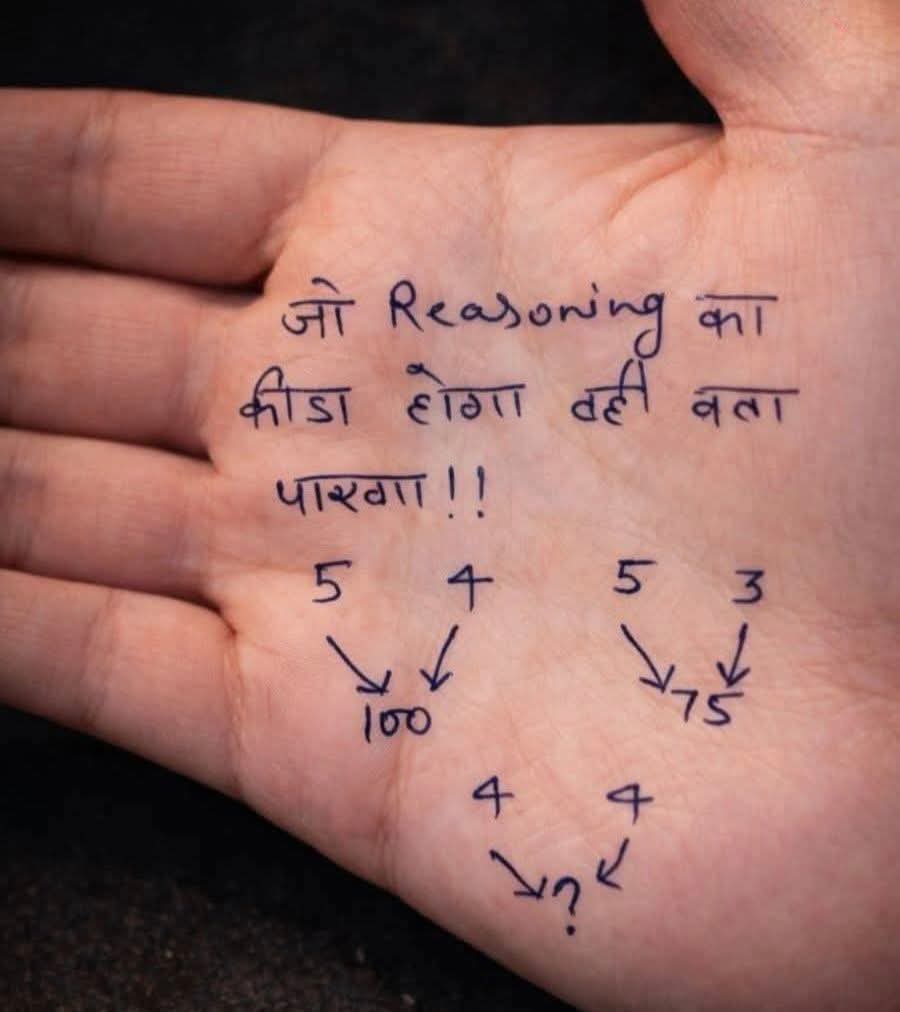 जो Reasoning का
कीडा होगा वही बता
पाएगा!!
5 4 5 3
100 75
4 4
?